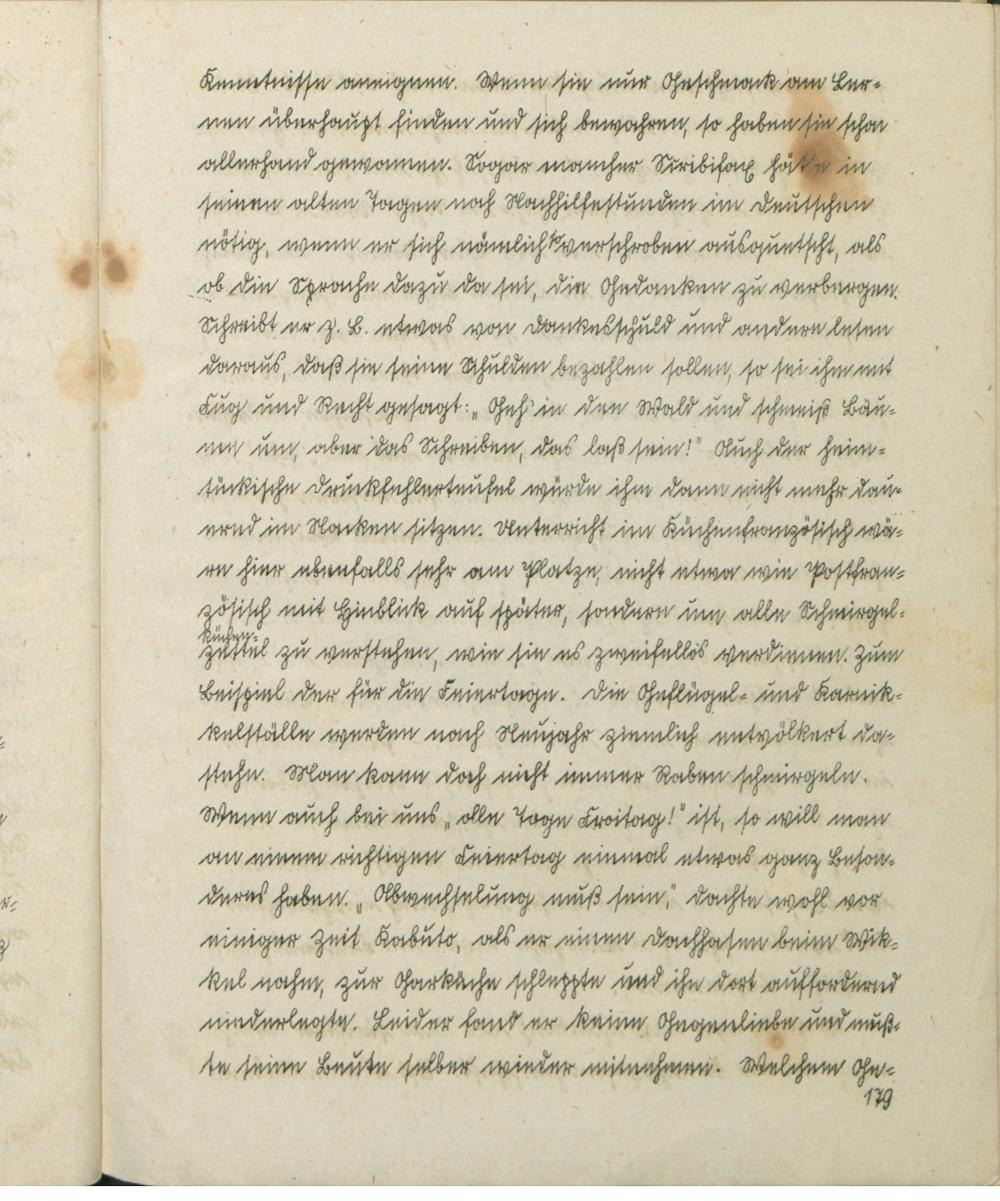 Kenntnisse aneignen. Wenn sie nur Geschmack am Ler-
nen überhaupt finden und sich bewahren, so haben sie schon
allerhand gewonnen. Sogar mancher Scribifax hätte in
seinen alten Tagen noch Nachhilfestunden im Deutschen
nötig, wenn er sich nämlich so verschroben ausquetscht, als
ob die Sprache dazu da sei, die Gedanken zu verbergen.
Schreibt er z. B. etwas von Dankesschuld und andere lesen
daraus, daß sie seine Schulden bezahlen sollen, so sei ihm mit
Fug und Recht gesagt: „Geh' in den Wald und schmeiß Bäu-
me um, aber das Schreiben, das laß sein!" Auch der heim-
tückische Druckfehlerteufel würde ihm dann nicht mehr dau-
ernd im Nacken sitzen. Unterricht im Küchenfranzösisch wä-
re hier ebenfalls sehr am Platze, nicht etwa wie Postfran-
zösisch mit Hinblick auf später, sondern um alle Schmirgel-
küchen-
zettel zu verstehen, wie sie es zweifellos verdienen. Zum
Beispiel der für die Feiertage. Die Geflügel- und Karnik-
kelställe werden nach Neujahr ziemlich entvölkert da-
stehn. Man kann doch nicht immer Raben schmirgeln.
Wenn auch bei uns „alle Tage Freitag!" ist, so will man
an einem richtigen Feiertag einmal etwas ganz Beson-
deres haben. „Abwechselung muß sein," dachte wohl vor
einiger Zeit Kabuto, als er einen Dachhasen beim Wik-
kel nahm, zur Garküche schleppte und ihn dort auffordernd
niederlegte. Leider fand er keine Gegenliebe und muß-
te seine Beute selber wieder mitnehmen. Welchem Ge-
179